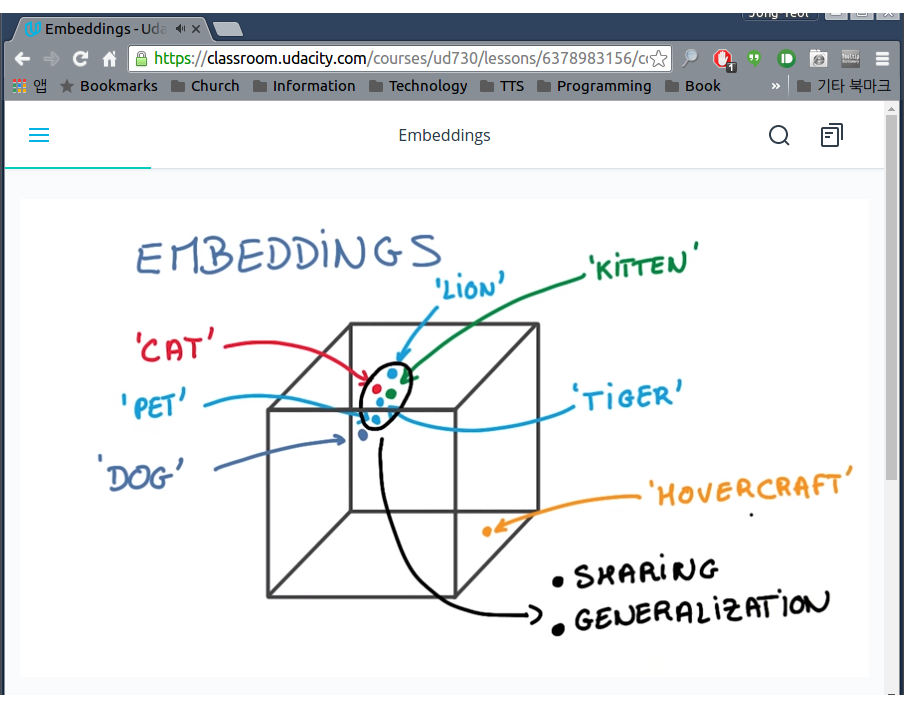 Embeddings - Uda
https://classroom.udacity.com/courses/ud730/lessons/6378983156/c
앱 Bookmarks Church Information Technology TTS Programming Book » 기타 북마크
Embeddings
EMBEDDINGS
'LION'
'KITTEN'
'CAT'
'PET'
'TIGER'
'DOG'
'HOVERCRAFT'
• SHARING
• GENERALIZATION